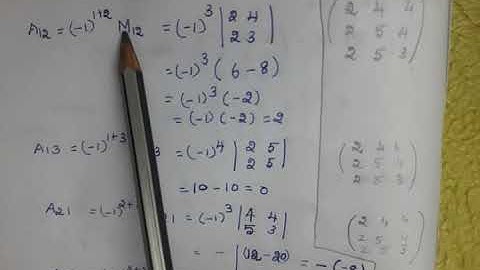 A12 = (-1)^1+2 M12 = (-1)^3 |2 4|
|2 3|
= (-1)^3 (6 - 8)
= (-1)^3 (-2)
= (-1) (-2) = 2
A13 = (-1)^1+3 3 = (-1)^4 |2 5|
|2 5|
= 10 - 10 = 0
A21 = (-1)^2+ 21 = (-1)^3 |4 4|
|5 3|
= - |(12 - 20)
= - (-8)
(2 4 4
2 5 4
2 5 3)
(2 4 4
2 5 4
2 5 3)
(2 4 4
2 5
2 5 3)